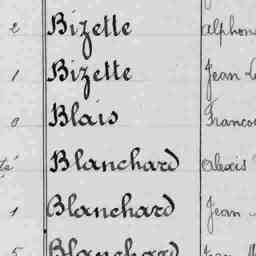 2 Bizette alphon
1 Bizette Jean
0 Blais Franco
té Blanchard alexis
1 Blanchard Jean
5 Blanchard Jean